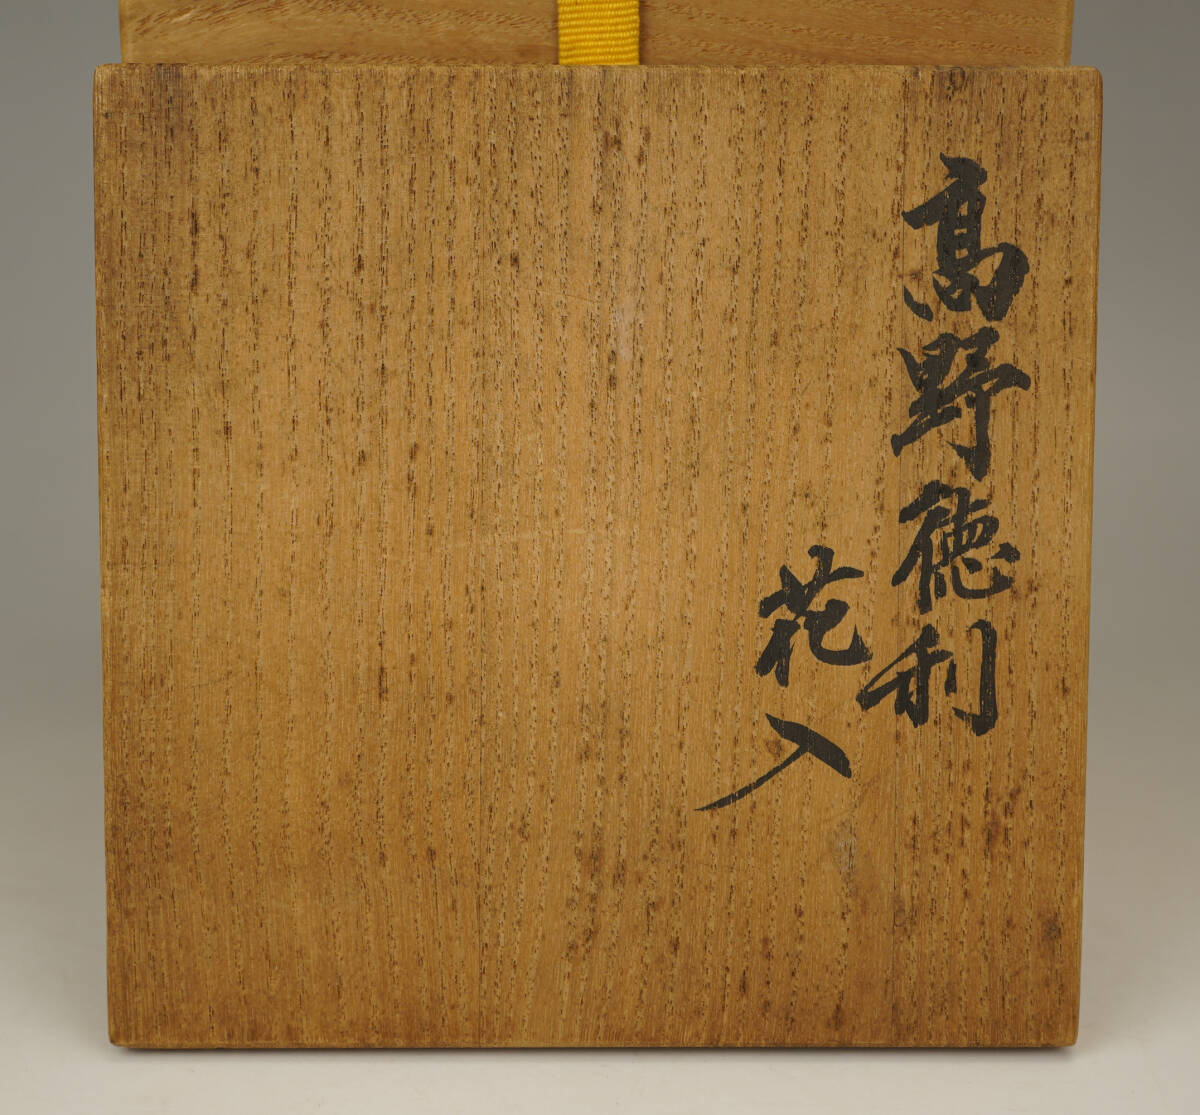 高野徳利
花入